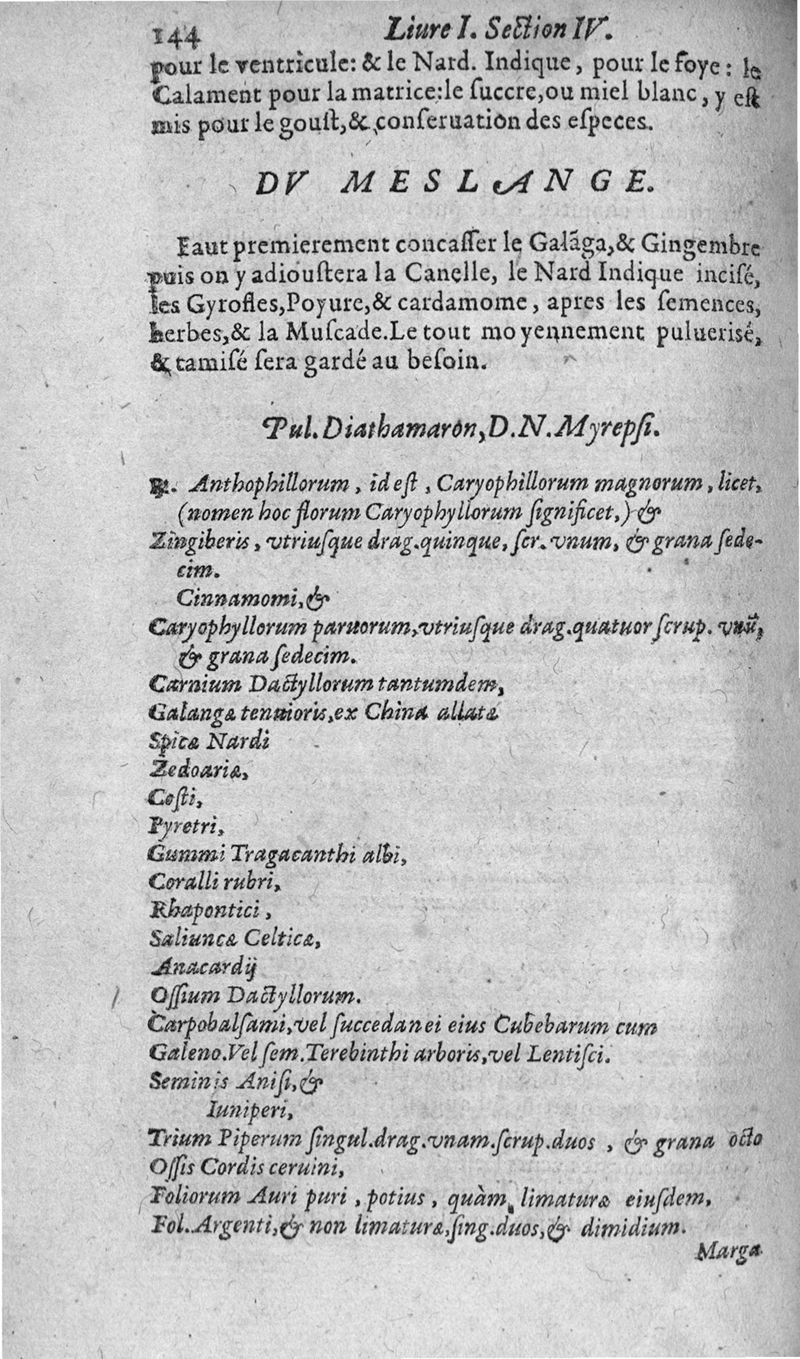 144 Liure I. Section IV.
pour le ventricule: & le Nard. Indique, pour le foye: le
Calament pour la matrice:le ſuccre,ou miel blanc, y eſt
mis pour le gouſt,& conſeruation des eſpeces.
DV MESLANGE.
Faut premierement concaſſer le Galãga,& Gingembre
puis on y adiouſtera la Canelle, le Nard Indique inciſé,
les Gyrofles,Poyure,& cardamome, apres les ſemences,
herbes,& la Muſcade.Le tout moyennement puluerisé,
& tamiſé ſera gardé au beſoin.
Pul.Diathamaron,D.N.Myrepſi.
℞. Anthophillorum, id eſt, Caryophillorum magnorum, licet,
(nomen hoc florum Caryophyllorum ſignificet,) &
Zingiberis, vtriuſque drag.quinque, ſcr. vnum, & grana ſede-
cim.
Cinnamomi,&
Caryophyllorum paruorum,vtriuſque drag.quatuor ſcrup. vnũ,
& grana ſedecim.
Carnium Dactyllorum tantumdem,
Galangæ tenuioris,ex China allatæ
Spicæ Nardi
Zedoariæ,
Coſti,
Pyretri,
Gummi Tragacanthi albi,
Coralli rubri,
Rhapontici,
Saliuncæ Celticæ,
Anacardij
Oſſium Dactyllorum.
Carpobalſami,vel ſuccedanei eius Cubebarum cum
Galeno.Vel ſem.Terebinthi arboris,vel Lentiſci.
Seminis Aniſi,&
Iuniperi,
Trium Piperum ſingul.drag.vnam.ſcrup.duos, & grana octo
Oſſis Cordis ceruini,
Foliorum Auri puri, potius, quàm limaturæ eiuſdem,
Fol.Argenti,& non limaturæ,ſing.duos,& dimidium.
Marga